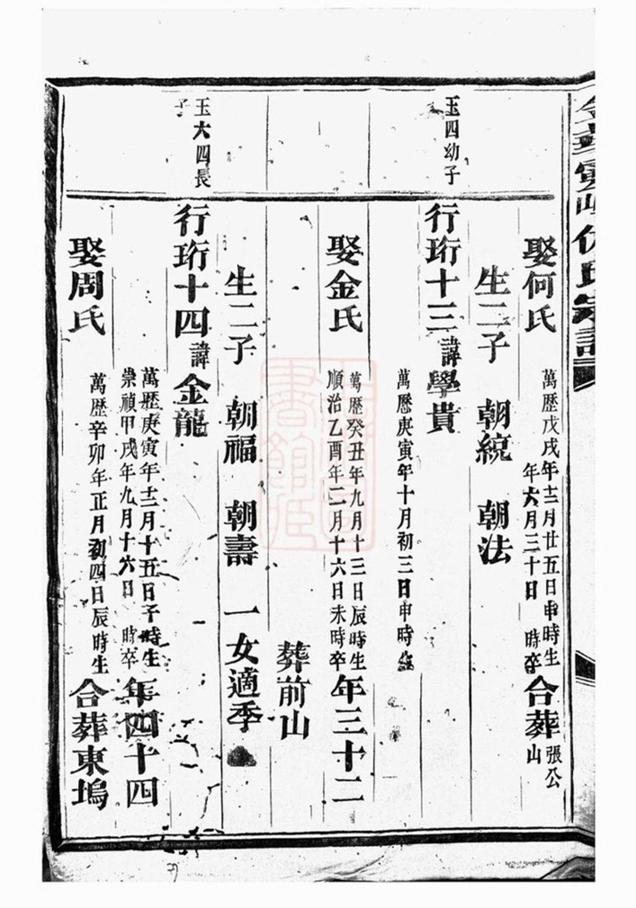 娶何氏 萬歷戊戌年十二月廿五日申時生 年六月三十日 時卒 合葬張公山
生二子 朝統 朝法
玉四幼子
行珩十三諱學貴
萬歷庚寅年十月初三日申時
娶金氏 萬歷癸丑年九月十三日辰時生 順治乙酉年二月十六日未時卒 年三十二
葬前山
生二子 朝福 朝壽 一女適季
玉大四長子
行珩十四諱金龍
萬歷庚寅年十二月十五日子時生 崇禎甲戌年九月十六日 時卒 年四十四
娶周氏 萬歷辛卯年正月初四日辰時生 合葬東塢